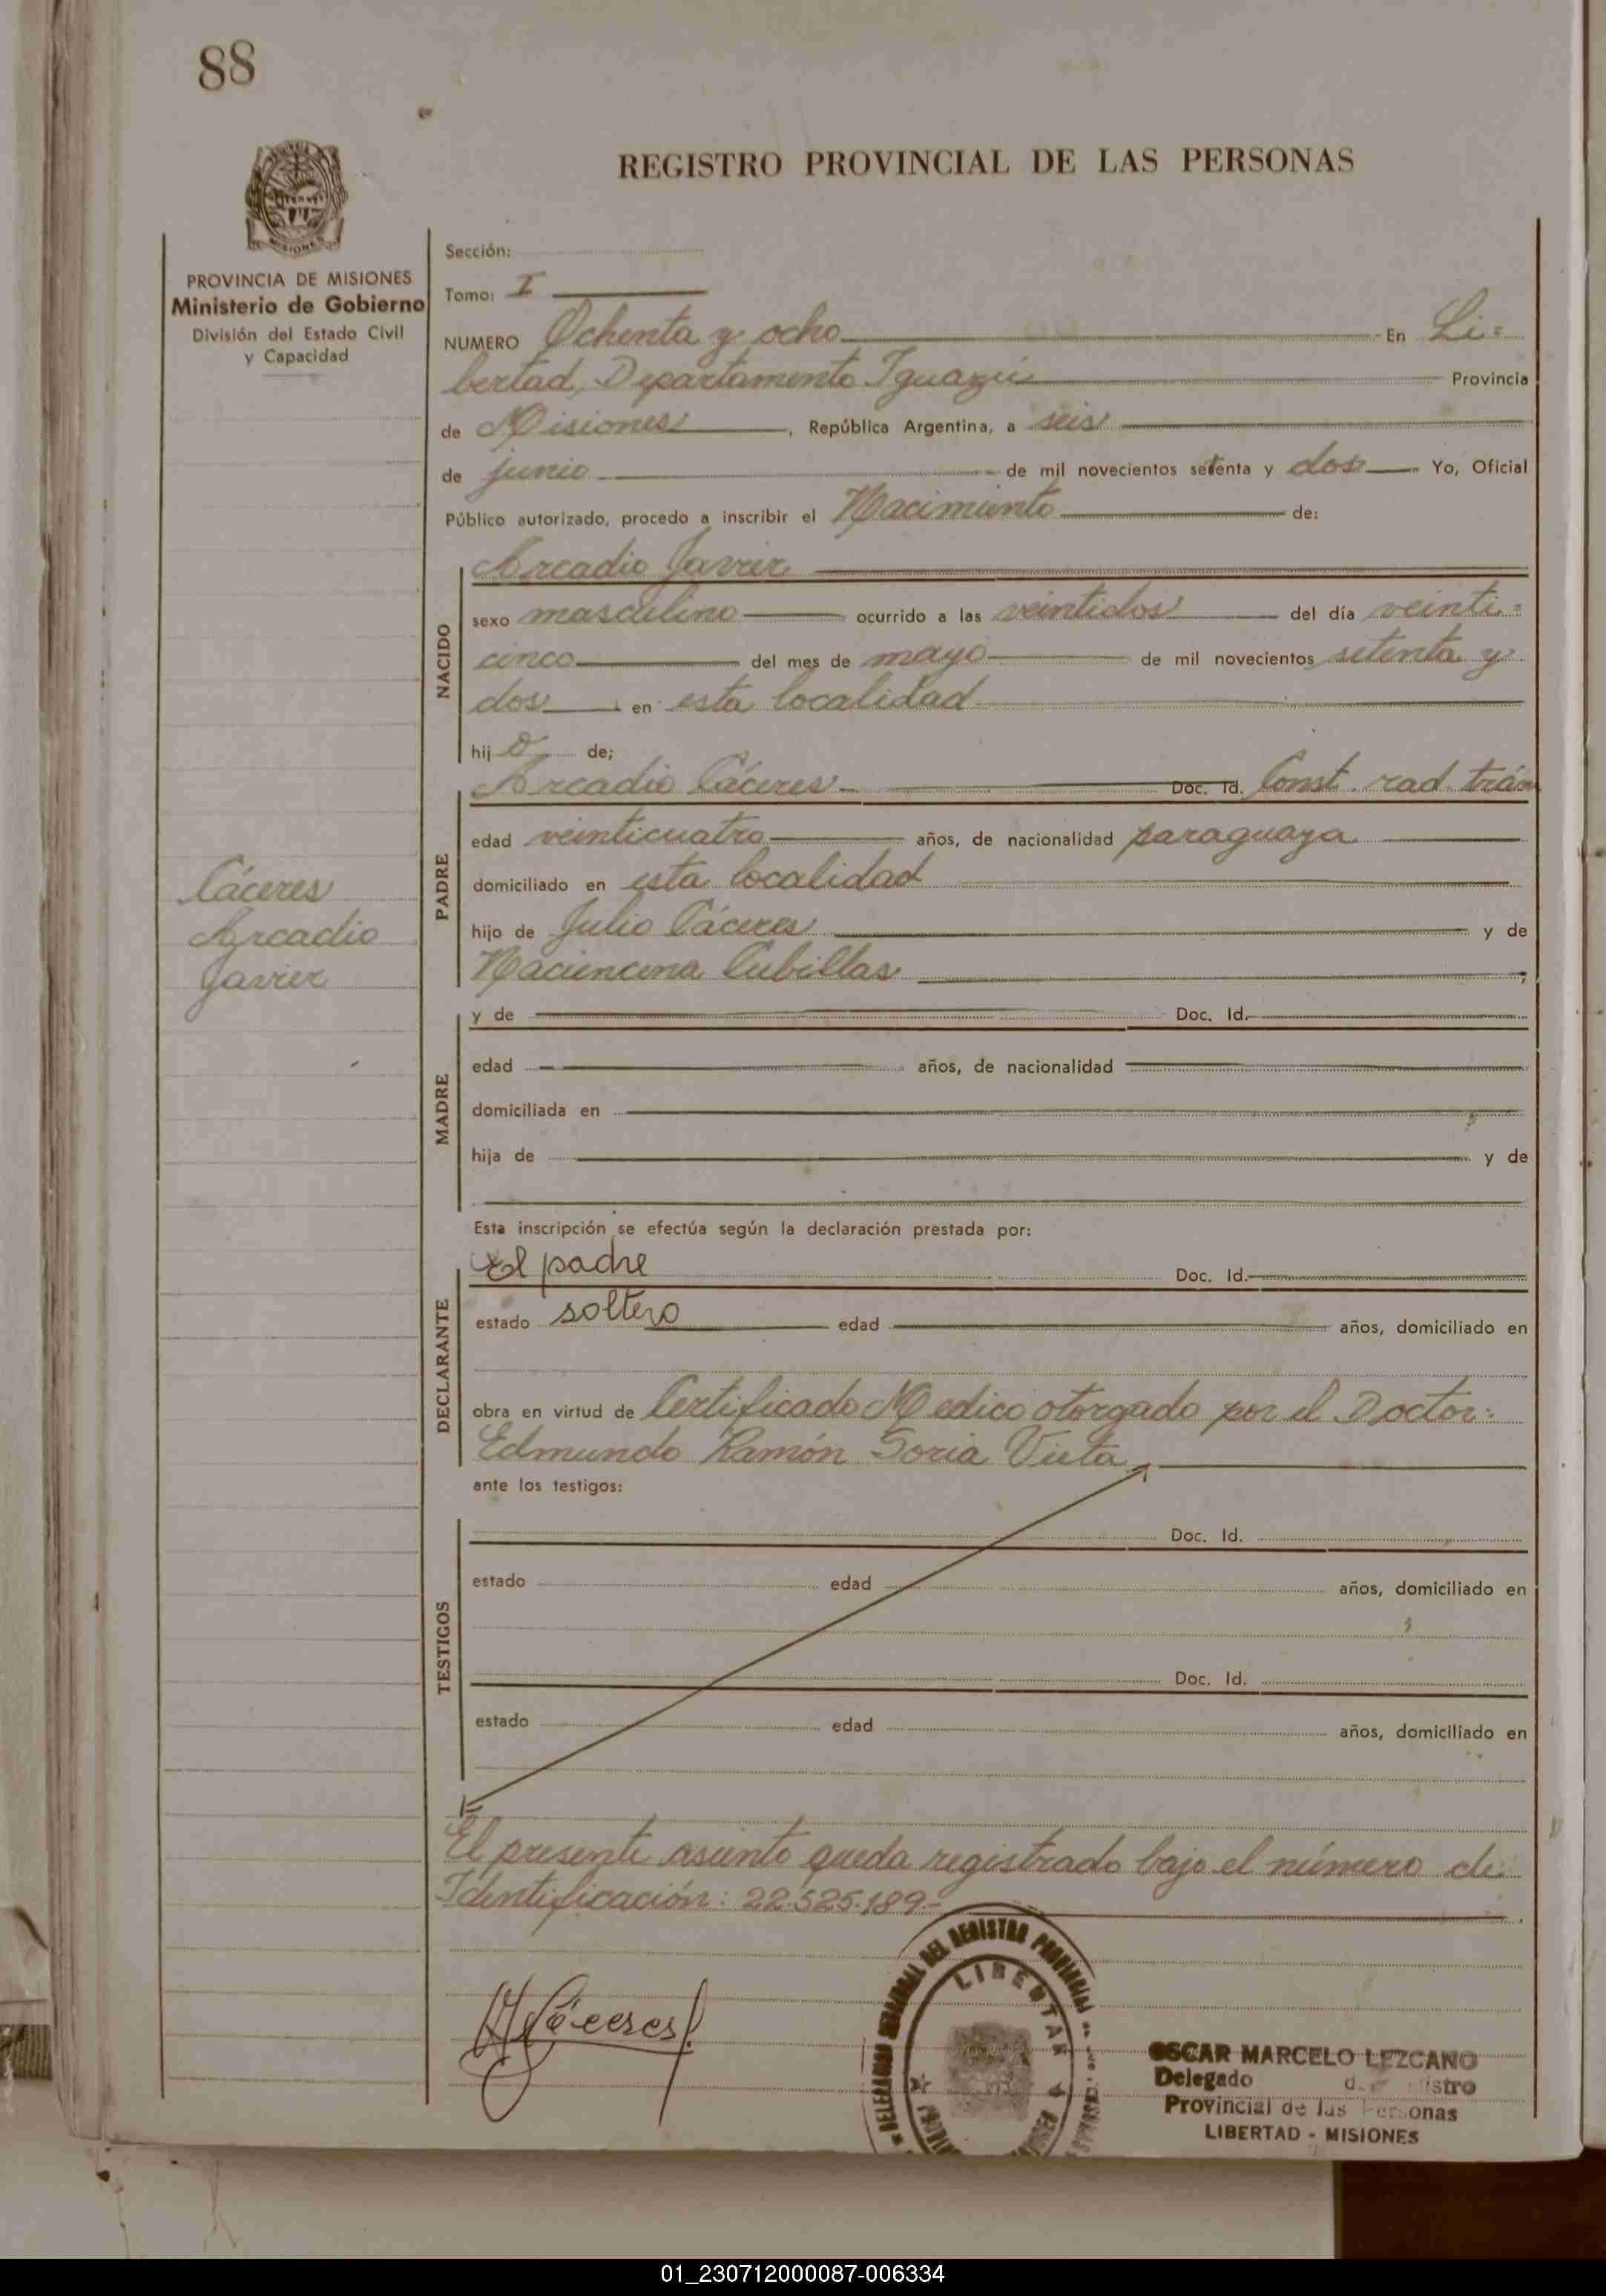 88
REGISTRO PROVINCIAL DE LAS PERSONAS
MISIONES
PROVINCIA DE MISIONES
Ministerio de Gobierno
División del Estado Civil
y Capacidad
Sección:
Tomo: I
NUMERO Ochenta y ocho En Li=
bertad, Departamento Iguazú Provincia
de Misiones, República Argentina, a seis
de junio de mil novecientos setenta y dos Yo, Oficial
Público autorizado, procedo a inscribir el Nacimiento de:
NACIDO
Arcadio Javier
sexo masculino ocurrido a las veintidos del día veinti=
cinco del mes de mayo de mil novecientos setenta y
dos en esta localidad
hijo de;
PADRE
Arcadio Cáceres.- Doc. Id. Const. rad. trán
edad veinticuatro años, de nacionalidad paraguaya
domiciliado en esta localidad
hijo de Julio Cáceres y de
Cubillas
Cáceres
Arcadio
Javier
MADRE
y de Doc. Id.
edad años, de nacionalidad
domiciliada en
hija de y de
Esta inscripción se efectúa según la declaración prestada por:
DECLARANTE
El padre Doc. Id.
estado soltero edad años, domiciliado en
obra en virtud de Certificado Medico otorgado por el Doctor:
Edmundo Ramón Soria Vieta
ante los testigos:
TESTIGOS
Doc. Id.
estado edad años, domiciliado en
Doc. Id.
estado edad años, domiciliado en
El presente asiento queda registrado bajo el número de
Identificación: 22.525.189.-
A Cáceres
DEL REGISTRO PROVINCIAL
LIBERTAD
OSCAR MARCELO LEZCANO
Delegado
Provincial de las Personas
LIBERTAD - MISIONES
01_230712000087-006334